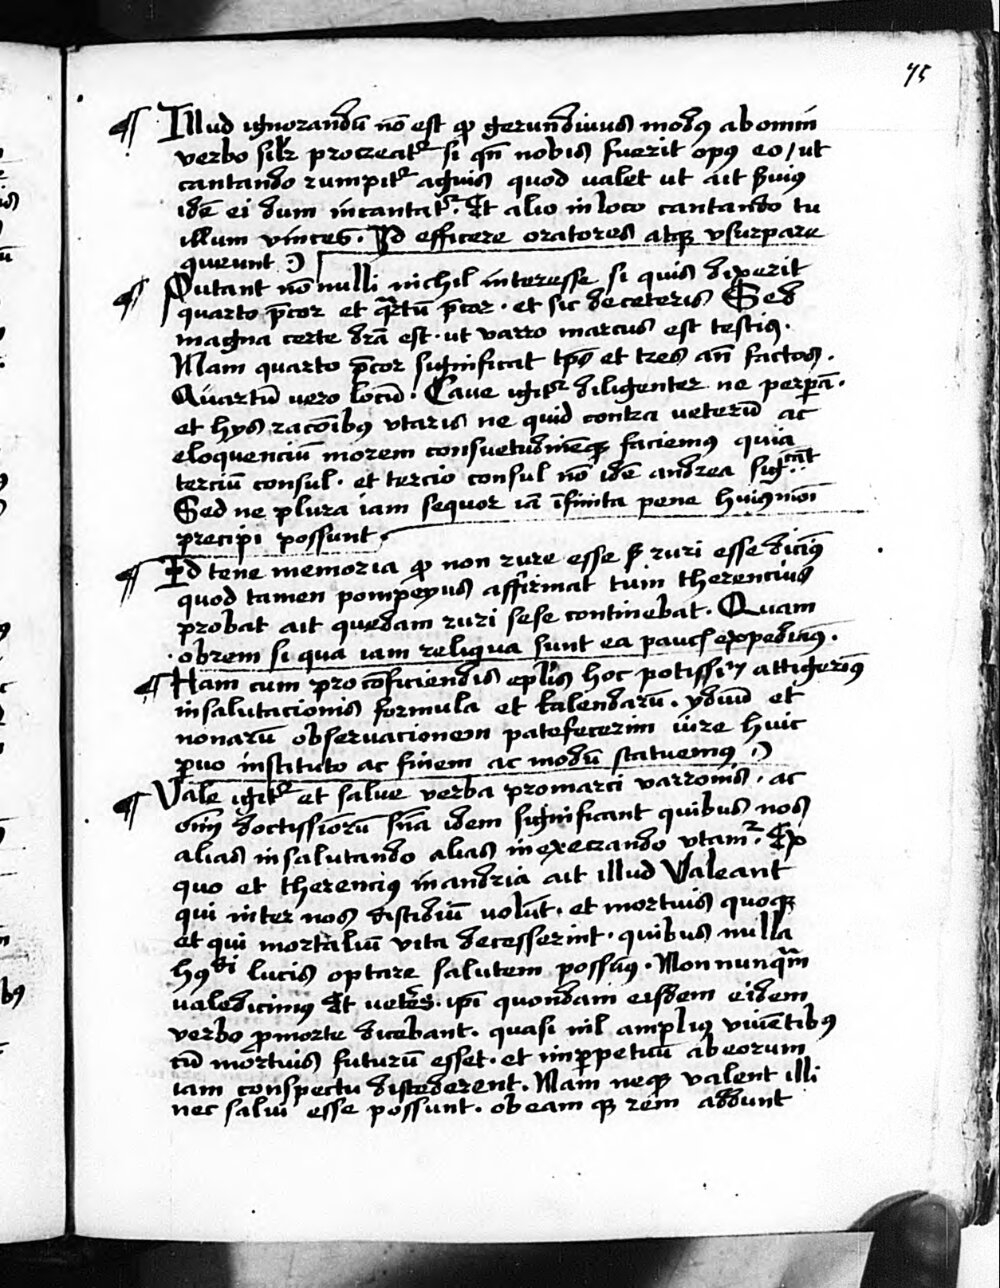 75
¶ Illud ignorandū nō est ꝙ gerundiuus modꝰ ab omni
verbo silr procreatᷣ si qn̄ nobis fuerit opꝰ eo / ut
cantando rumpitᷣ agnis quod valet ut ait Suiꝰ
idē ei dum incantatᷣ. Et alio in loco cantando tu
illum vinces. Id efficere oratores atqꝫ vsurpare
queunt
¶ Putant nō nulli nichil interesse si quis dixerit
quarto p̄tor et qrtū p̄tor. et sic de ceteris Sed
magna certe dr̄a est. ut varro marcus est testis.
Nam quarto p̄tor significat tp̄s et tres an̄ factos.
Quartū vero locū. Caue igitᷣ diligenter ne perperā.
et hys racōibꝰ vtaris ne quid contra veterū ac
eloquencium morem consuetudinēqꝫ faciemꝰ quia
terciū consul. et tercio consul nō idē andrea sig̅cāt
Sed ne plura iam sequor iā īfinita pene huiꝰmōi
precipi possunt.
¶ Id tene memoria ꝙ non rure esse ruri esse dicimꝰ
quod tamen pompeyus affirmat tum therencius
probat ait quedam ruri sese continebat. Quam
obrem si qua iam reliqua sunt ea paucis expediamꝰ.
¶ Nam cum pro cōficiendis ep̄lis hoc potissīꝫ attigerimꝰ
in salutacionis formula et kalendarū. yduū et
nonarū obseruacionem patefecerim iure huic
ꝑuo instituto ac finem ac modū statuemꝰ
¶ Vale igitᷣ et salue verba pro marci varronis. ac
oīm doctissimorū sn̄ia idem significant quibus nos
alias in salutando alias in execrando vtamᷣ. Ex
quo et therenciꝰ in andria ait illud Valeant
qui inter nos distidiū volūt. et mortuis quoqꝫ
et qui mortaliū vita decesserint. quibus nulla
hꝰdi lucis optare salutem possumꝰ. Non nunqm̄
valedicimus Et veteres. ipī quondam eisdem eidem
verbo ꝓ morte dicebant. quasi nil ampliꝰ viuētibꝰ
cū mortuis futurū esset. et in ꝑpetuū ab eorum
iam conspectu discederent. Nam neqꝫ valent illi
nec salui esse possunt. ob eam qꝫ rem addunt